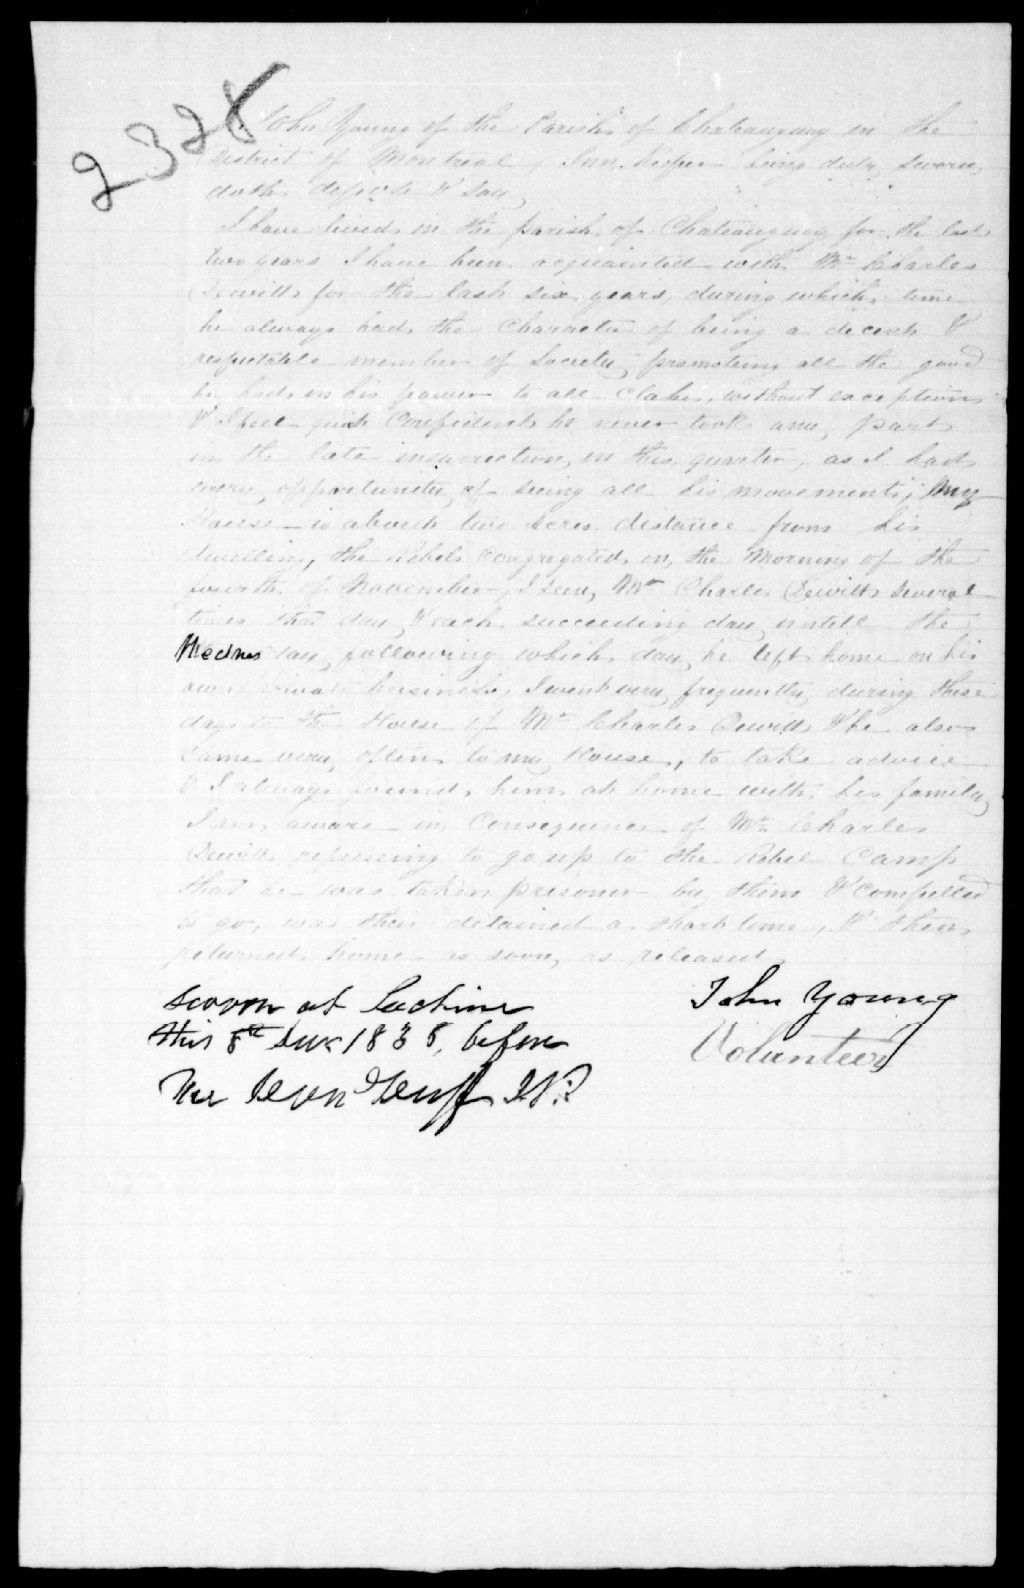 2328
John Young of the Parish of Chateauguay in the
District of Montreal, Inn Keeper being duly sworn,
doth depose & Say,
I have lived in the parish of Chateauguay for the last
two years I have been acquainted with Mr Charles
Dewitt for the last six years, during which time
he always had the Character of being a decent &
respectable member of Society, promoting all the good
he had in his power to all Clases, without exception
& I feel quite Confident he never took any part
in the late insurrection, in this quarter, as I had
every opportunity of seeing all his movements; My
House is about two Acres distance from his
dwelling, the Rebels Congregated on the Morning of the
fourth of November, I saw Mr Charles Dewitt several
times that day, & each succeeding day untill the
Wednesday following which day he left home on his
own private business, I went very frequently during these
days to the House of Mr Charles Dewitt & he also
Came very often to my House, to take advice
& I always found him at home with his family
I am aware in Consequence of Mr Charles
Dewitt refusing to go up to the Rebel Camp
that he was taken prisoner by them & compelled
to go, was their detained a short time, & then
returned home as soon as released
John Young
Volunteer
Sworn at Lachine
this 8th Dec 1838, before
me Duff J.P.